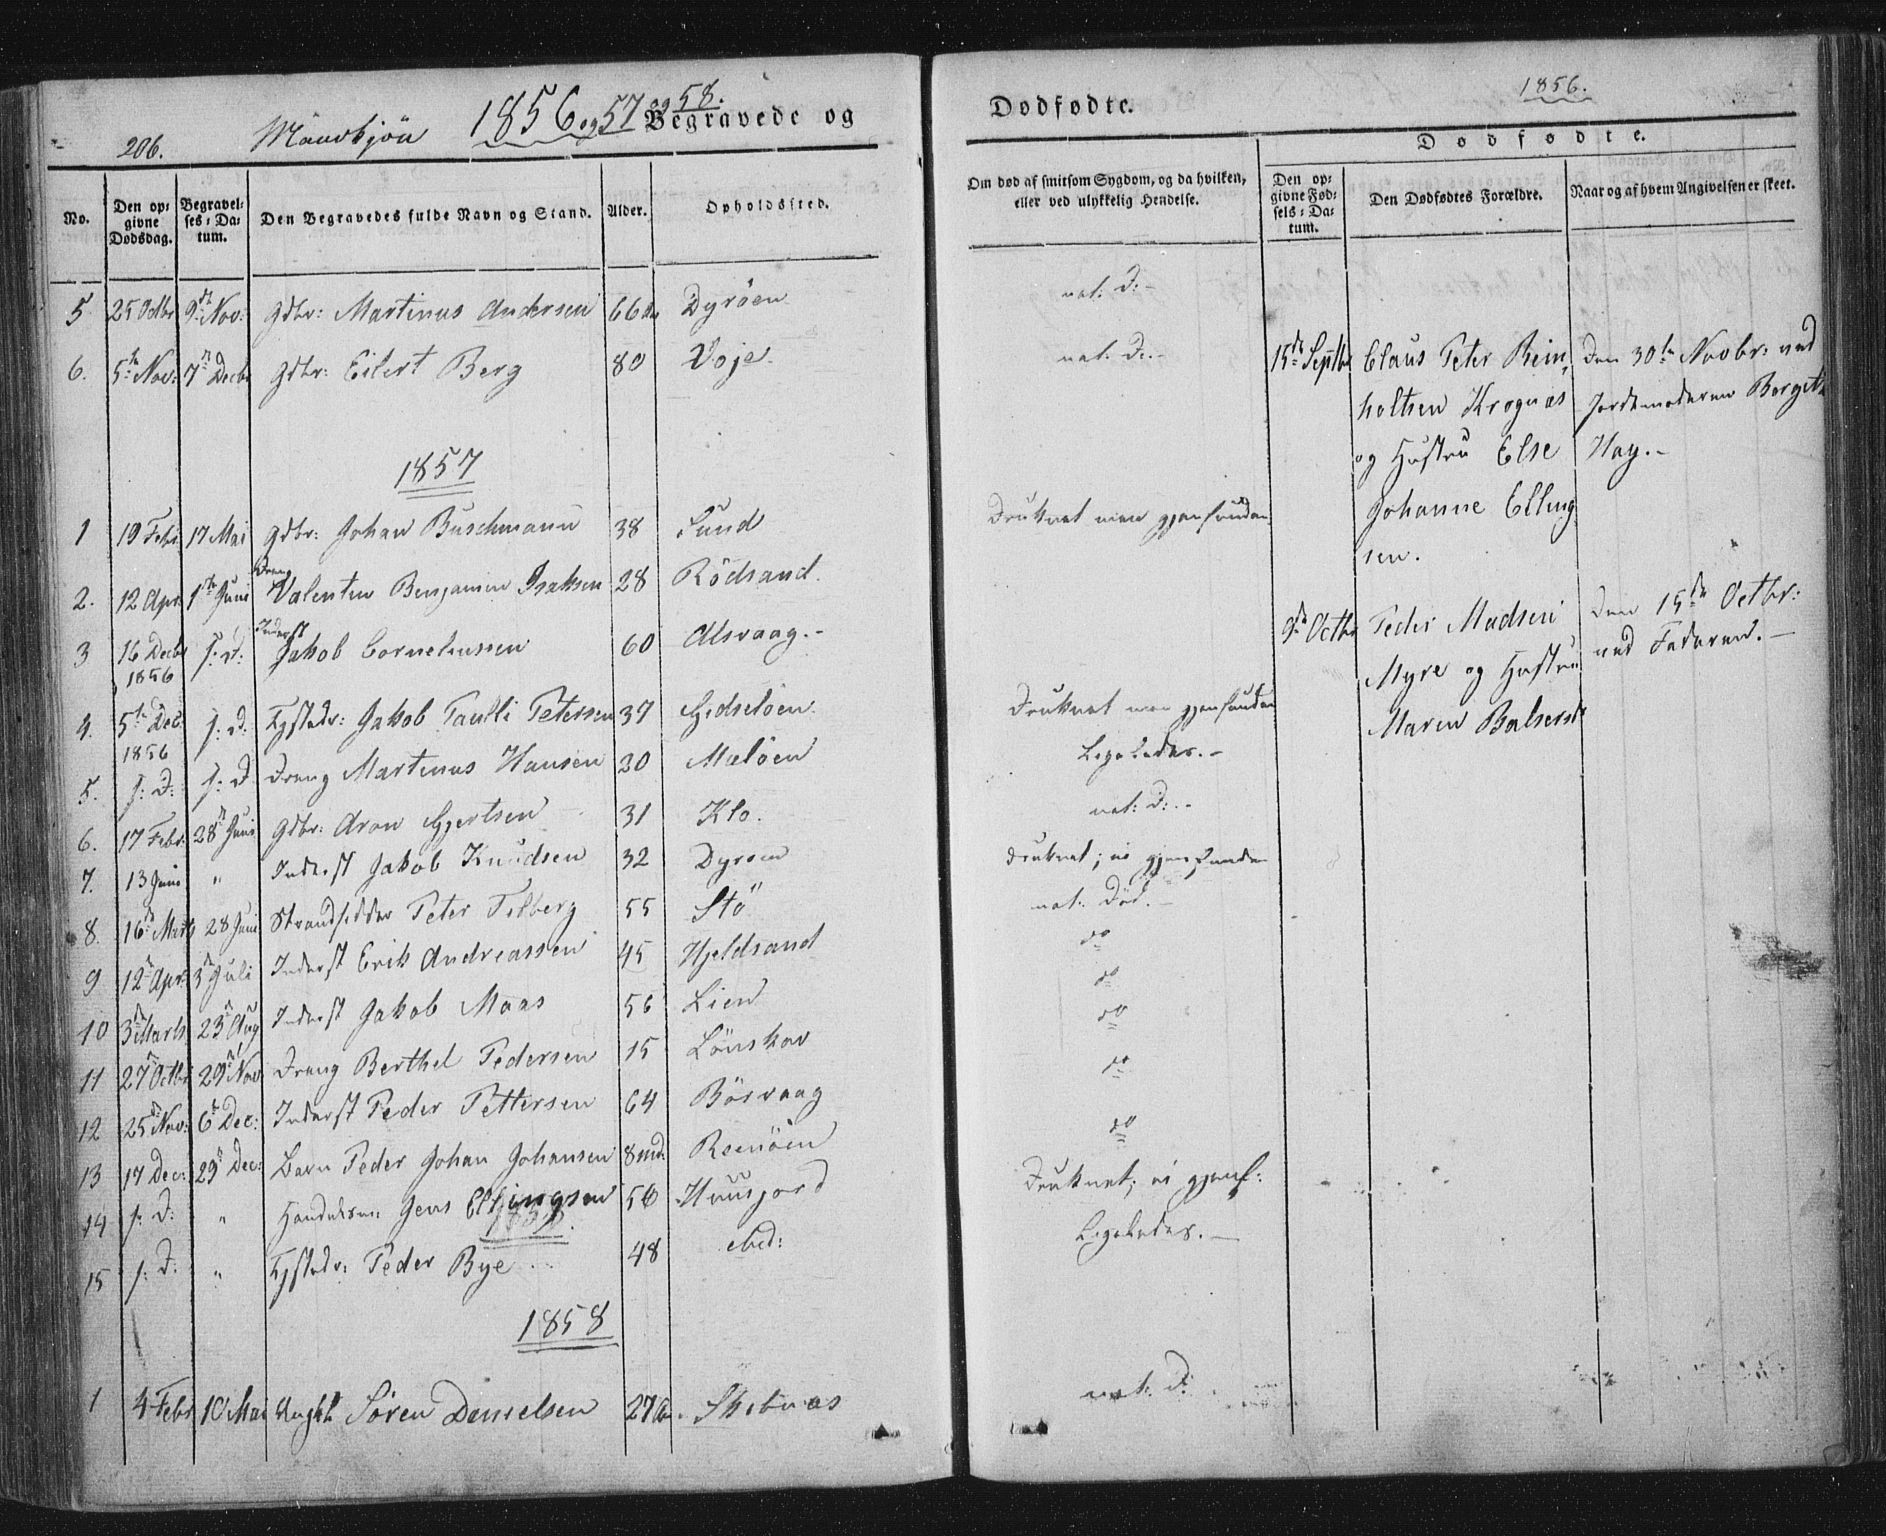 206. Mandkjön 1856 og 57 og 58. Begravede og
No. Den opgivne Dødsdag. Begravelses-Datum. Den Begravedes fulde Navn og Stand. Alder. Opholdssted.
5 25 Octbr 9de Nov: Gdbr: Martinus Andersen 66 Aar Dyröen
6. 5te Nov: 7de Decbr Gdbr: Eilert Berg 80 Voje.
1857
1 19 Febr 17 Mai Gdbr: Johan Buschmann 38 Sund
2. 12 Apr. 1ste Juni Dreng Valentin Benjamin Isaksen 28 Rödsand.
3 16 Decbr 1856 s: D: Inderst Jakob Corneliussen 60 Alsvaag.-
4. 5te Dec: 1856 s: D. Jakob Paulli Petersen 37 Gidselöen
5. s: D: s: D Dreng Martinus Hansen 30 Melöen
6. 17 Febr. 28de Juni Gdbr: Aron Gjertsen 31 Klo.
7. 13 Juni " Inderst Jakob Knudsen 32 Dyröen
8. 16de Marts 28 Juni Strandsidder Peter Filberg 55 Stö
9 12te Apr. 3de Juli Inderst Erik Andreassen 45 Hjeldsand
10 3de Marts 23de Aug Inderst Jakob Maas 56 Lien
11 27de Octbr 29de Nov. Dreng Berthel Pedersen 15 Lönskov
12 25de Nov: 6te Dec: Inderst Peder Pettersen 64 Börvaag
13 17 Dec: 29de Dec: Barn Peder Johan Johansen 8 md. Reenöen
14 s: D: " Jens Ellingsen 56 Huusjord
15 s: D. " Peder Bye 48 ibid:
1858
1 4 Febr 10 Mai Ungkl Sören Danielsen 27 Aar. Skibnæs
Dødfødte. 1856.
Dødfødte.
Om død af smitsom Sygdom, og da hvilken, eller ved ulykkelig Hendelse. Den opgivne Fødsels-Datum. Den Dødfødtes Forældre. Naar og af hvem Angivelsen er skeet.
nat: D.-
nat: D.-
15de Septbr Claus Peter Rein-
holtsen Krognæs
og Hustru Else
Johanne Elling
sen.
Den 30te Novbr: ved
Jordemoderen Berget
Hay.-
Druknet men gjenfunden
9de Octbr Peder Madsen
Myre og Hustru
Maren Balsersd
Den 15de Octbr:
ved Faderen.-
Druknet men gjenfunden
Ligeledes.-
nat: D:.-
druknet; ei gjenfunden
nat: Död.-
do
do
do
do
do
Druknet; ei gjenf:
Ligeledes.-
nat: D.